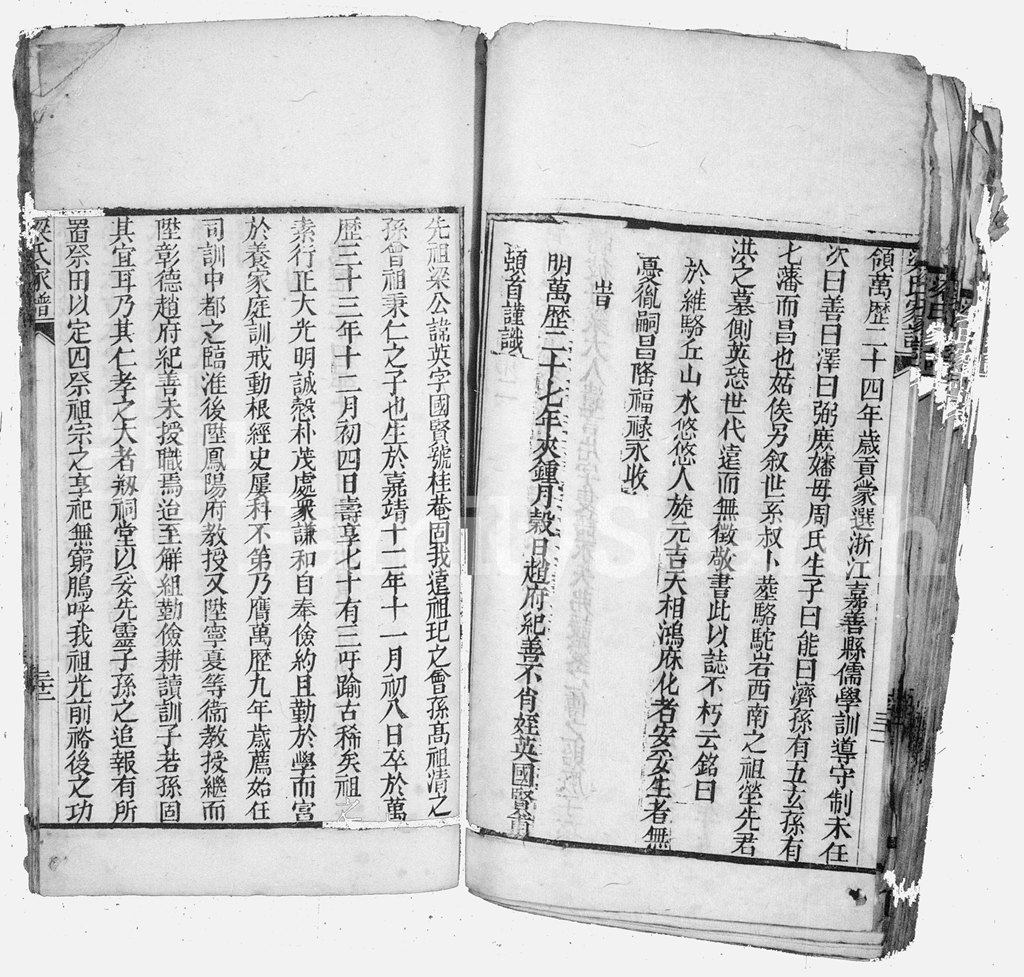 領萬歷二十四年歲貢蒙選浙江嘉善縣儒學訓導守制未任
次曰善曰澤曰弼庶嬸毋周氏生子曰能曰濟孫有五玄孫有
七藩而昌也姑俟另叙世系叔卜塟駱駝岩西南之祖塋先君
洪之墓側英恐世代遠而無徵敬書此以誌不朽云銘曰
於維駱丘山水悠悠人旋元吉天相鴻庥化者安妥生者無
憂胤嗣昌隆福祿永收
旹
明萬歷二十七年夾鍾月榖日趙府紀善不肖姪英國賢甫
頓首謹識
先祖梁公諱英字國賢號桂菴固我遠祖玘之曾孫髙祖清之
孫曾祖秉仁之子也生於嘉靖十二年十一月初八日卒於萬
歷三十三年十二月初四日壽享七十有三吁踰古稀矣祖之
素行正大光明誠愨朴茂處衆謙和自奉儉約且勤於學而富
於養家庭訓戒動根經史屢科不第乃膺萬歷九年歲薦始任
司訓中都之臨淮後陞鳳陽府教授又陞寧夏等衞教授繼而
陞彰德趙府紀善未授職焉迨至解組勤儉耕讀訓子若孫固
其宜耳乃其仁孝之大者剏祠堂以妥先靈子孫之追報有所
置祭田以定四祭祖宗之享祀無窮鳴呼我祖光前裕後之功
梁氏家譜